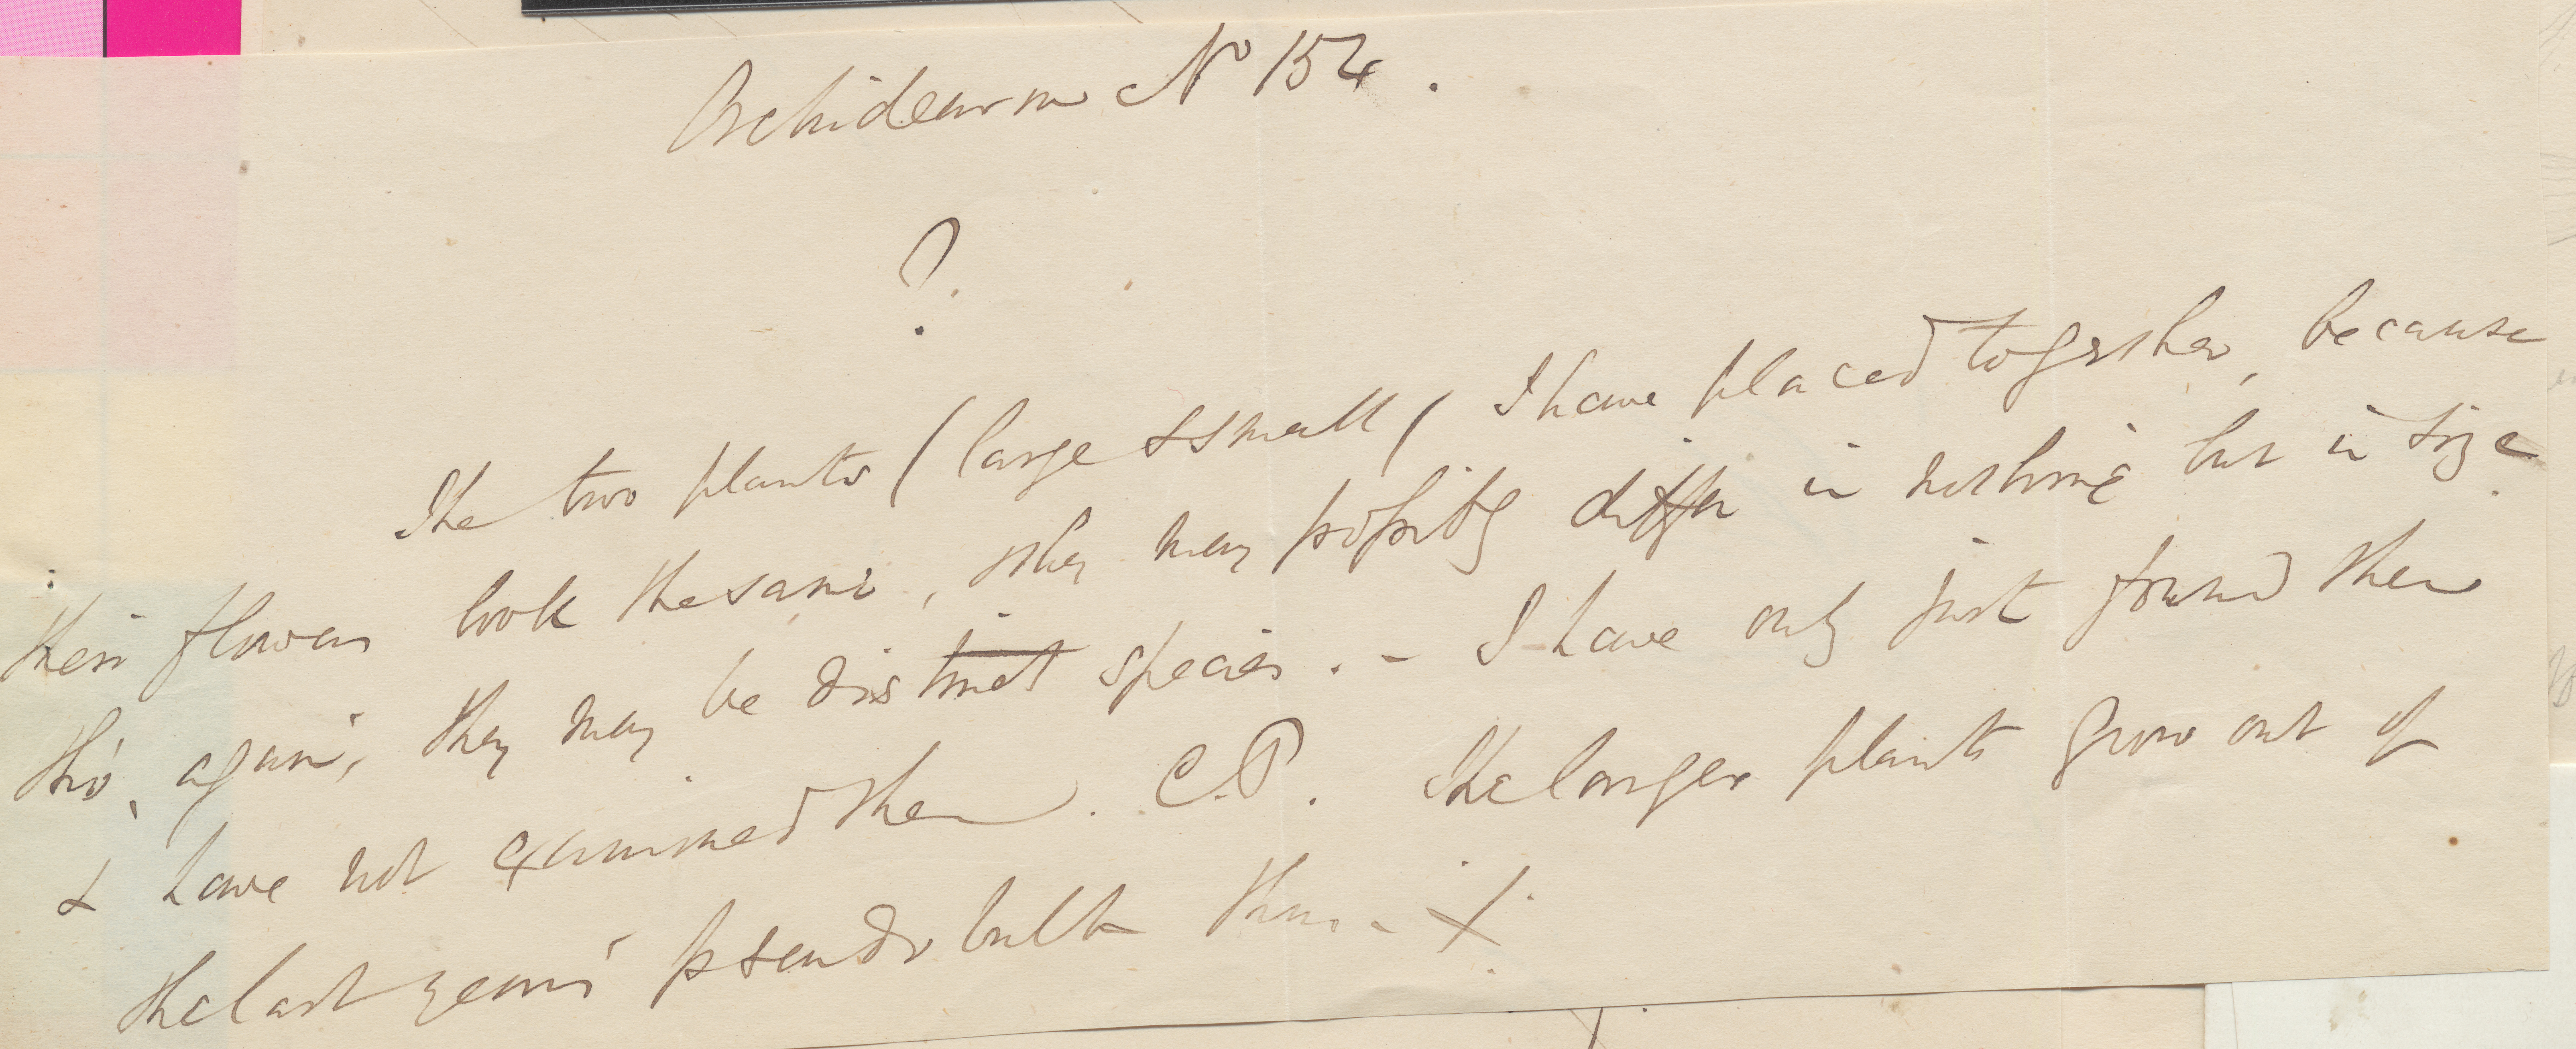 Orchidearum No 154.
?
The two plants (large & small) I have placed together, because
their flowers look the same, they may possibly differ in nothing but in size
tho', again, they may be distinct species. – I have only just found them
& have not examined them. C.P. The larger plants grow out of
the last year's pseudo bulb thus –